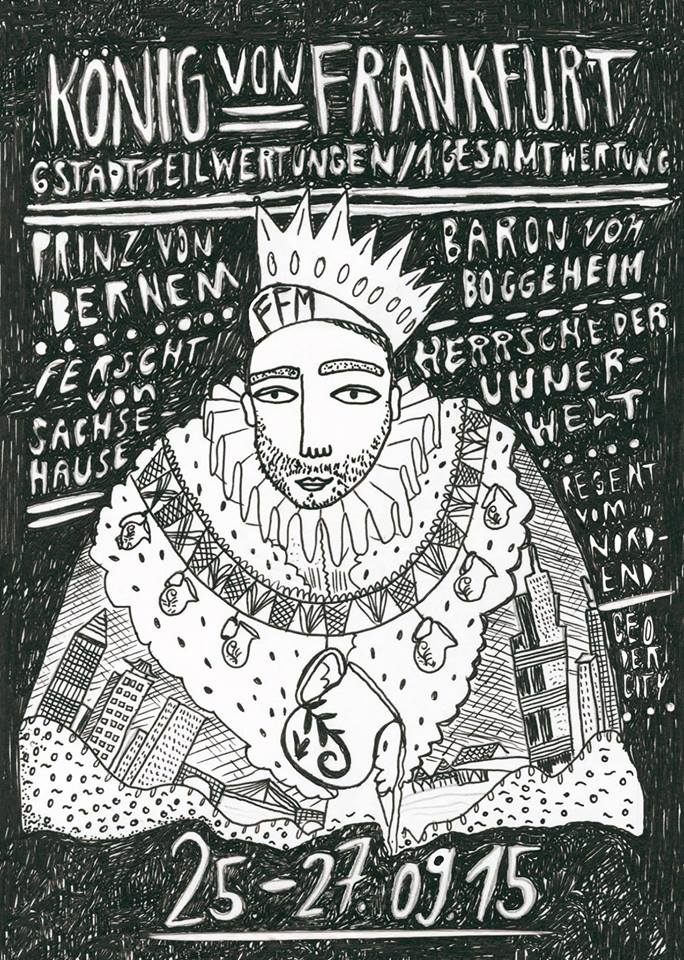 KÖNIG VON FRANKFURT
6 STADTTEILWERTUNGEN/1 GESAMTWERTUNG
PRINZ VON
BERNEM
FERSCHT
VON
SACHSE
HAUSE
FFM
BARON VON
BOGGEHEIM
HERRSCHE DER
UNNER-
WELT
REGENT
VOM
NORD-
END
CEO
DER
CITY
25.-27.09.15